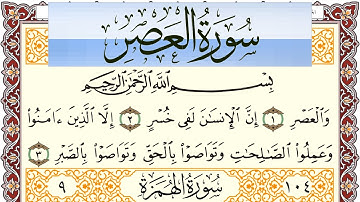 سُورَةُ العَصْرِ
بِسْمِ اللَّهِ الرَّحْمَٰنِ الرَّحِيمِ
وَالْعَصْرِ ۝١ إِنَّ الْإِنسَانَ لَفِي خُسْرٍ ۝٢ إِلَّا الَّذِينَ ءَامَنُوا
وَعَمِلُوا الصَّالِحَاتِ وَتَوَاصَوْا بِالْحَقِّ وَتَوَاصَوْا بِالصَّبْرِ ۝٣
١٠٤ سُورَةُ الهُمَزَةِ ٩